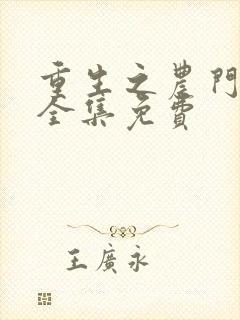 重生之農門
全集免費
王廣永